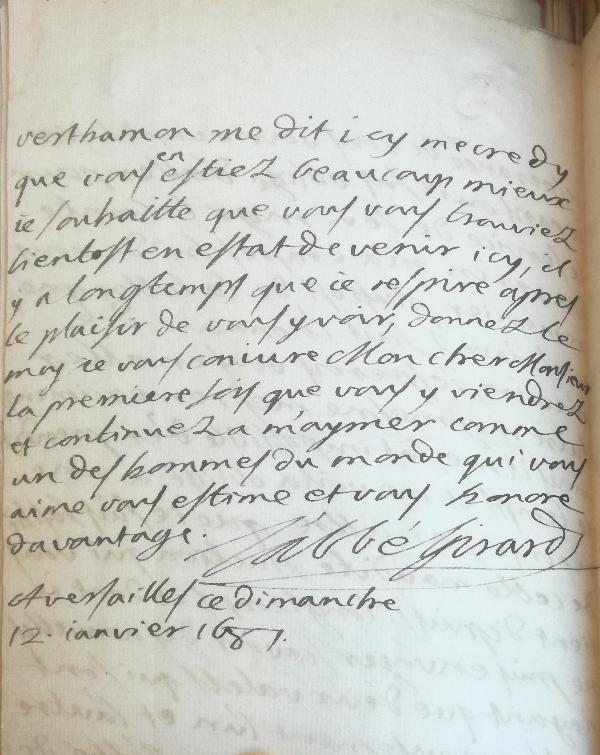 verthamon me dit icy mecredy
que vous en estiez beaucoup mieux
ie souhaitte que vous vous trouviez
bientost en estat de venir icy, il
y a longtemps que ie respire apres
le plaisir de vous y voir, donnez le
moy ie vous coniure Mon cher Monsieur
la premiere fois que vous y viendrez
et continuez a m'aymer comme
un des hommes du monde qui vous
aime vous estime et vous honore
davantage. L'abbé Girard
A versailles ce dimanche
12. ianvier 1687.